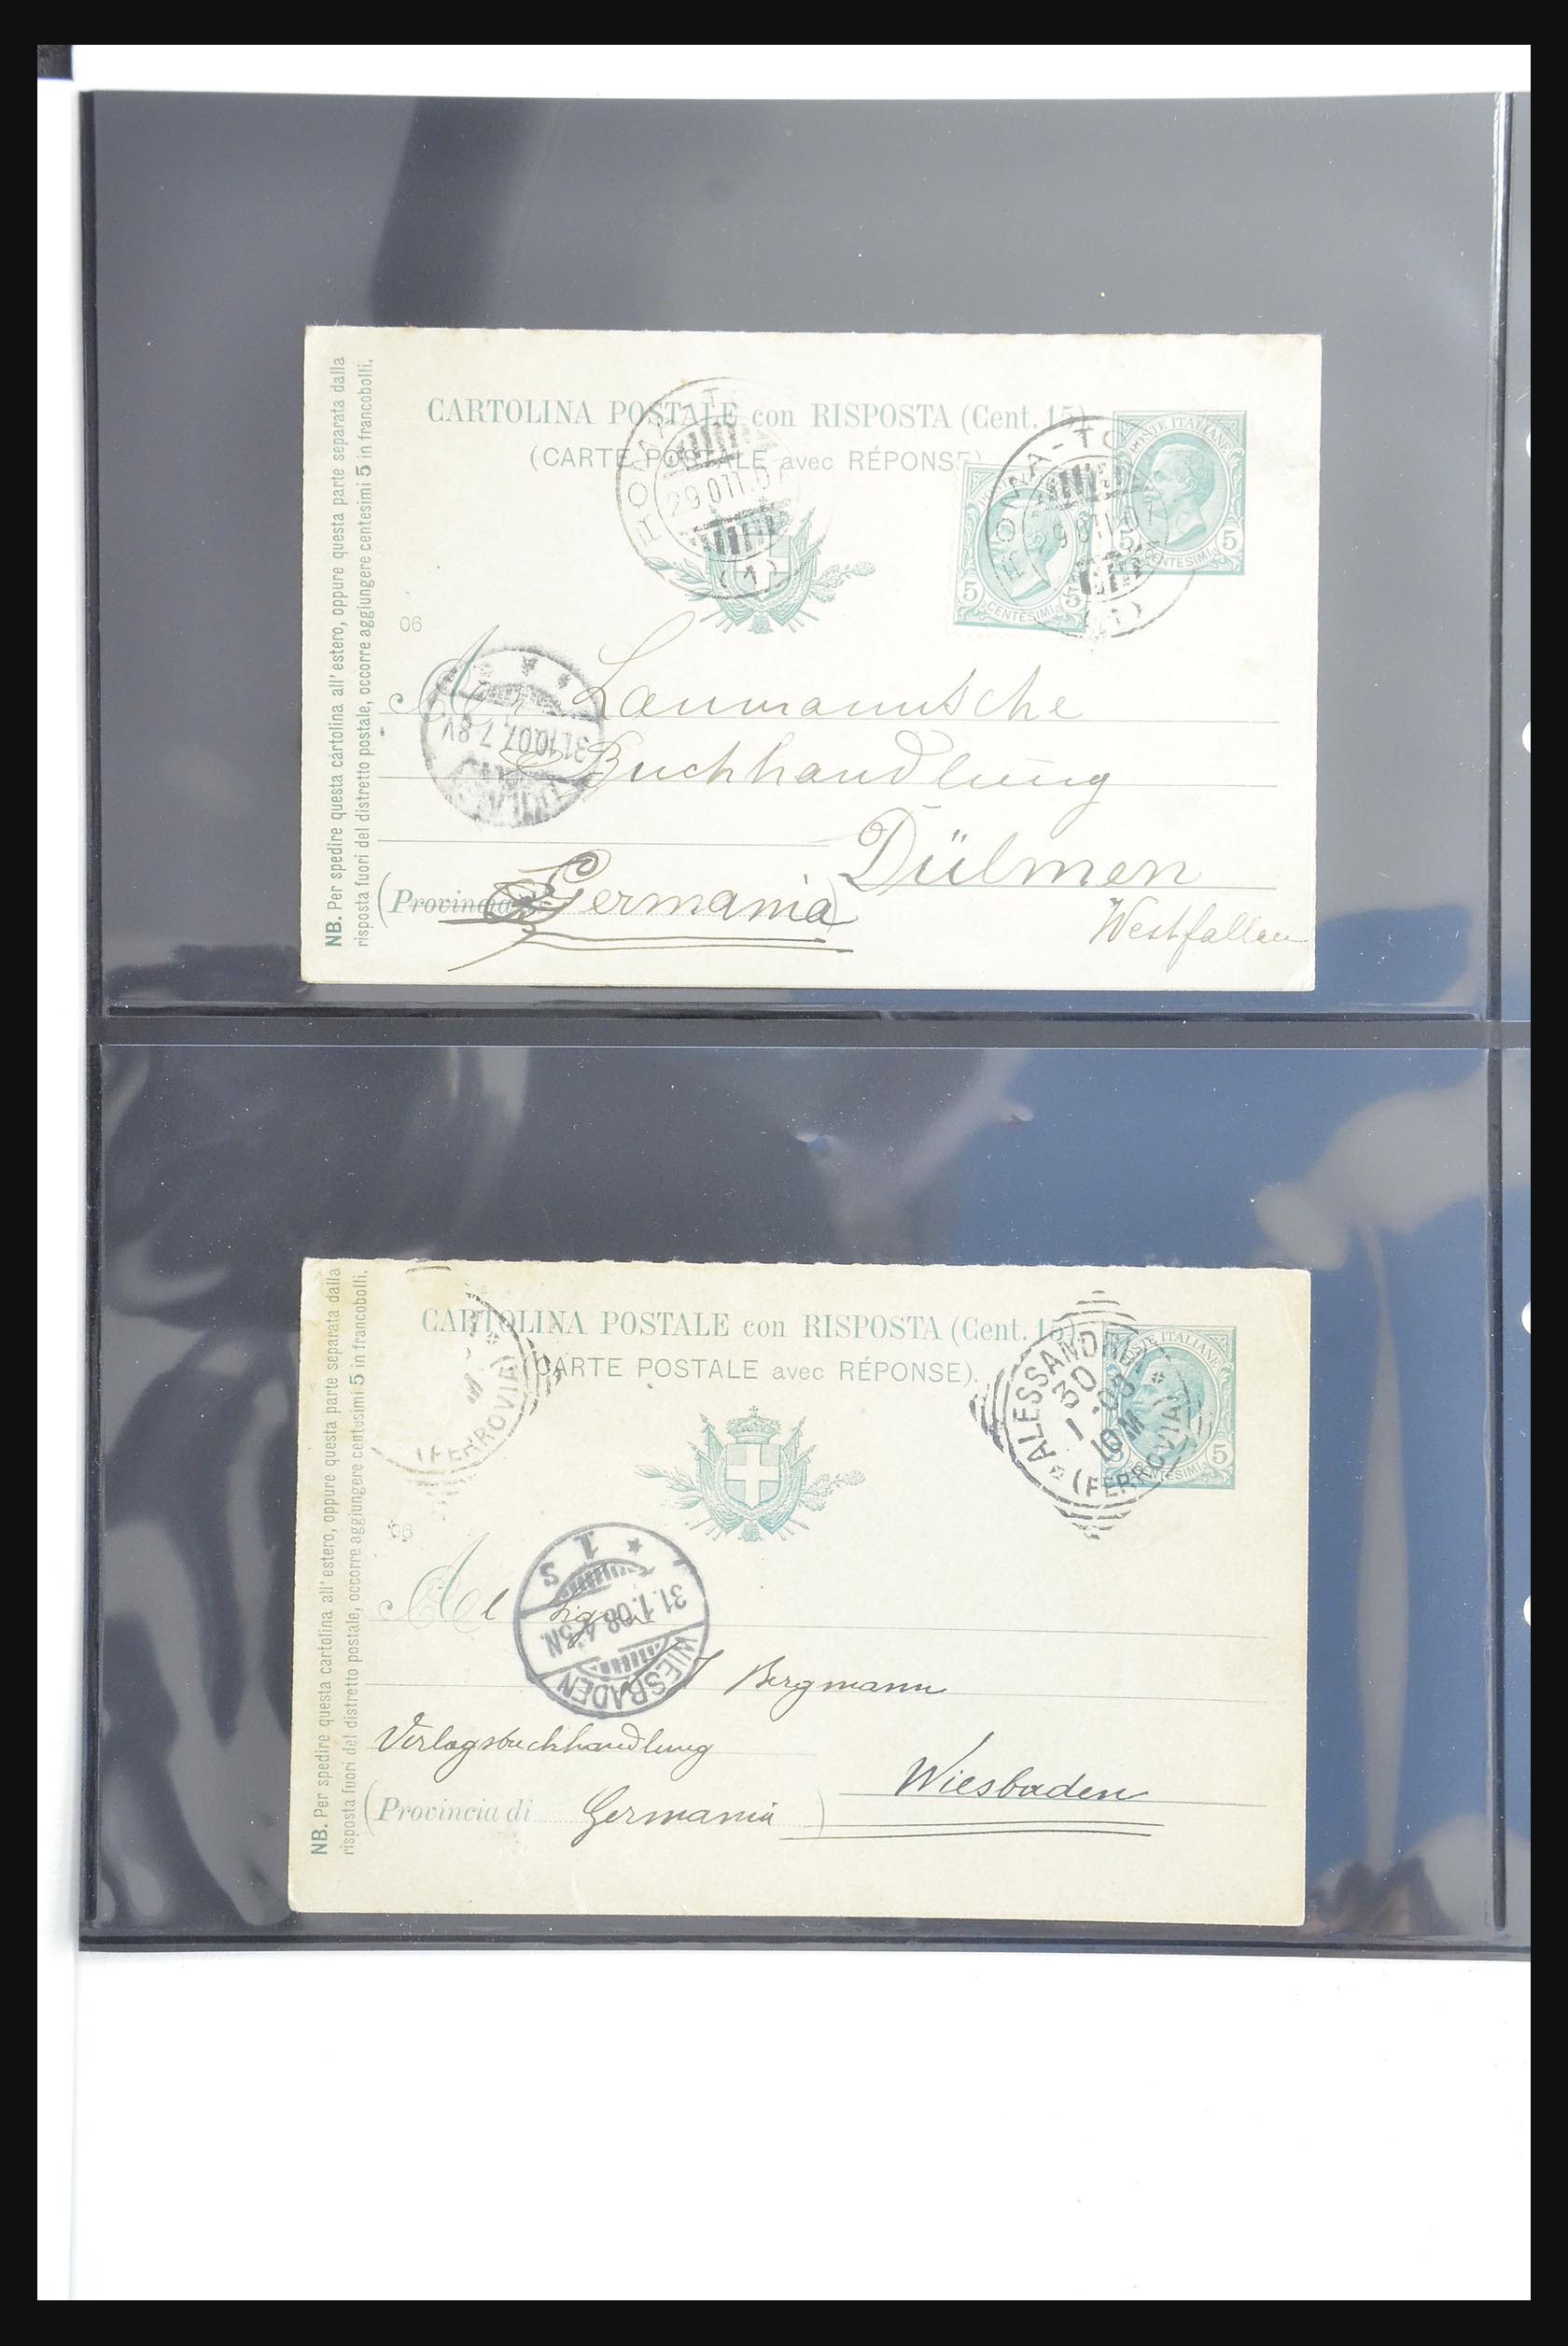 CARTOLINA POSTALE con RISPOSTA (Cent. 15)
(CARTE POSTALE avec RÉPONSE)
POSTE ITALIANE
5 5
CENTESIMI
5 5
CENTESIMI
29.0TT.07
(1)
29.0TT.07
06
31.10.07. 7-8V
A
Laumannsche
Buchhandlung
Dülmen
(Provincia Germania)
Westfallen
NB. Per spedire questa cartolina all'estero, oppure questa parte separata dalla
risposta fuori del distretto postale, occorre aggiungere centesimi 5 in francobolli.
CARTOLINA POSTALE con RISPOSTA (Cent. 15)
(CARTE POSTALE avec RÉPONSE).
POSTE ITALIANE
5
CENTESIMI
ALESSANDRIA
30
1 08
10M
(FERROVIA)
(FERROVIA)
06
WIESBADEN
31.1.08.4-5N.
* 1 S
Al Signor
J Bergmann
Verlagsbuchhandlung
Wiesbaden
(Provincia di Germania)
NB. Per spedire questa cartolina all'estero, oppure questa parte separata dalla
risposta fuori del distretto postale, occorre aggiungere centesimi 5 in francobolli.